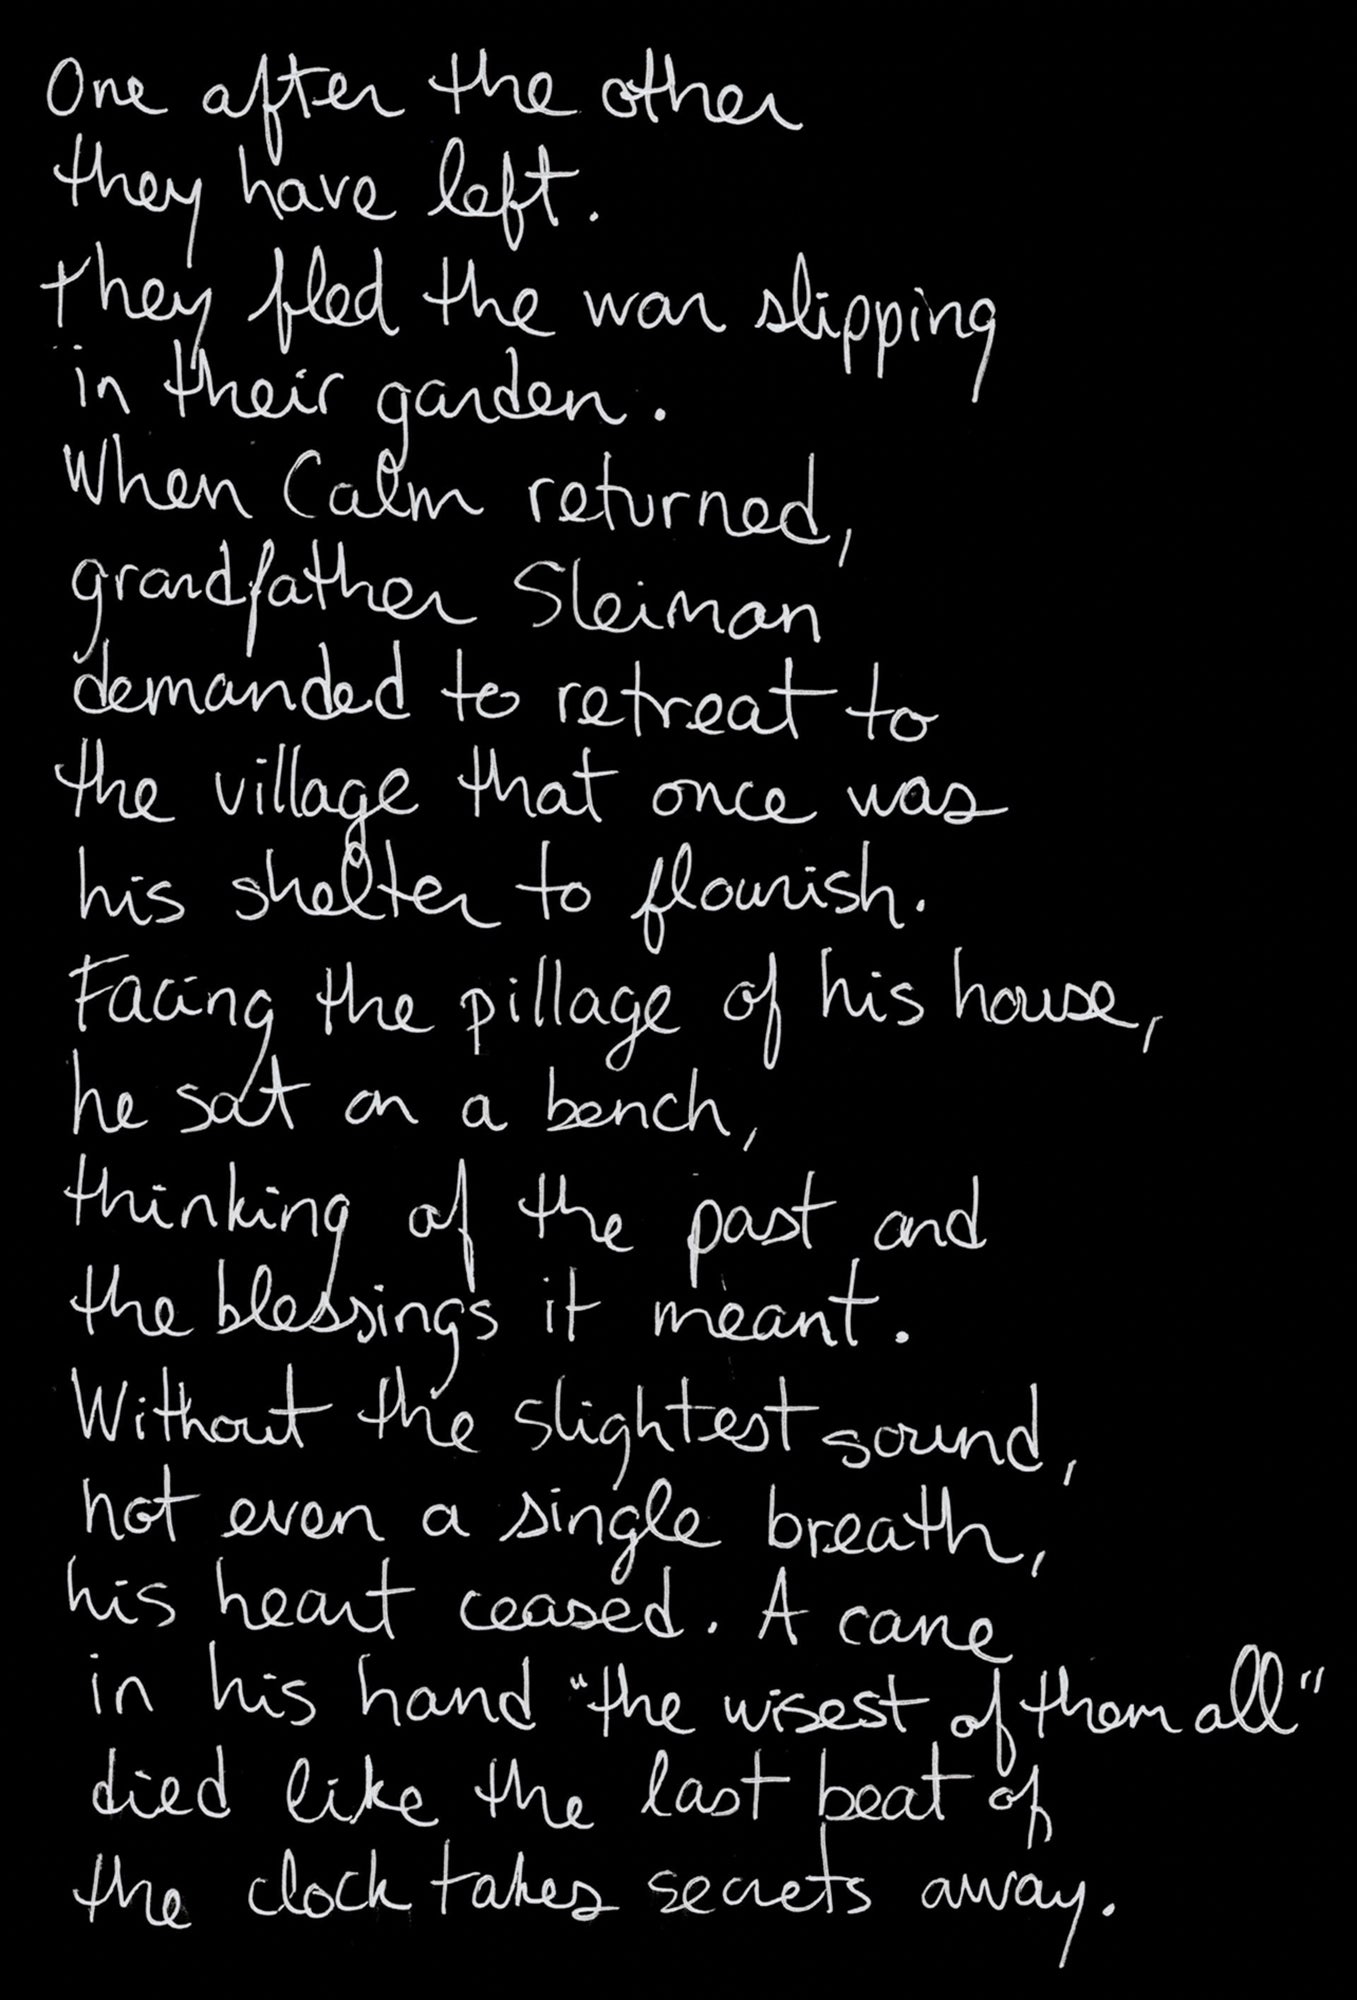 One after the other
they have left.
they fled the war slipping
in their garden.
When Calm returned,
grandfather Sleiman
demanded to retreat to
the village that once was
his shelter to flourish.
Facing the pillage of his house,
he sat on a bench,
thinking of the past and
the blessings it meant.
Without the slightest sound,
not even a single breath,
his heart ceased. A cane
in his hand "the wisest of them all"
died like the last beat of
the clock takes secrets away.